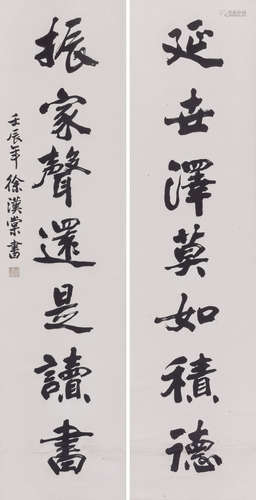 延世澤莫如積德
振家聲還是讀書
壬辰年徐漢棠書